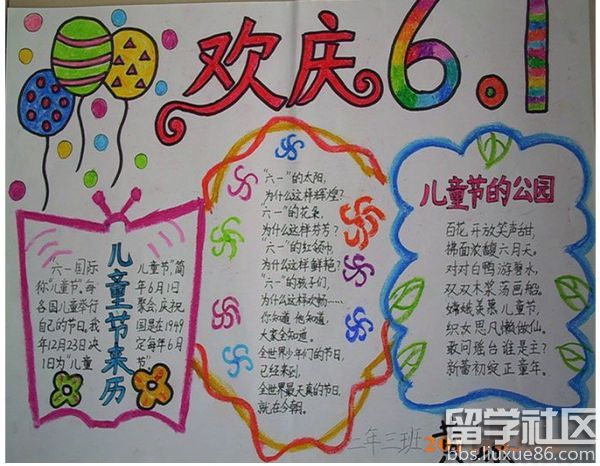 欢庆6.1
儿童节来历
六一国际儿童节"简
称"儿童节".每年6月1
各国儿童举行聚会,庆祝
自己的节日.我国是在1949
年12月23日决定每年6月
1日为"儿童节".
"六一"的太阳,
为什么这样辉煌?
"六一"的花朵,
为什么这样芬芳?
"六一"的红领巾
为什么这样鲜艳?
"六一"的孩子们,
为什么这样欢畅……
你知道 他知道,
大家全知道.
全世界少年们的节日,
已经来到.
全世界最天真的节日,
就在今朝.
儿童节的公园
百花开放笑声甜,
拂面浓馥六月天.
对对白鸭游碧水,
双双木桨荡画船.
嫦娥羡慕儿童节,
织女思凡懒做仙.
敢问瑶台谁是主?
新蕾初绽正童年.
二年三班
留学社区
bbs.liuxue86.com